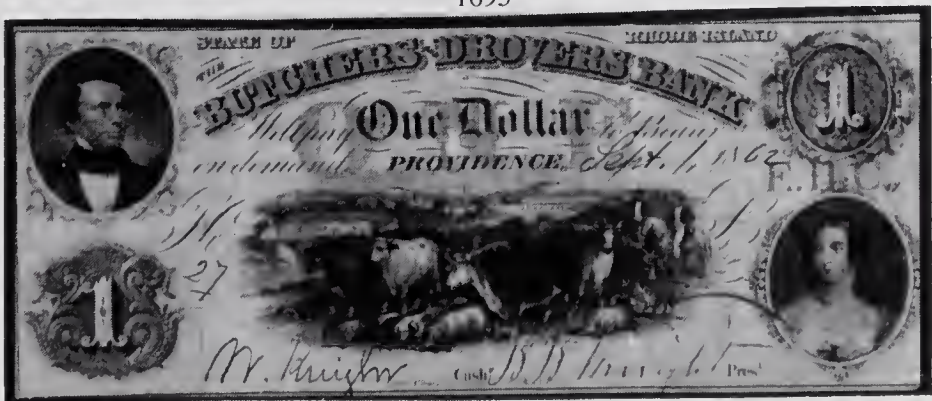 1695
STATE OF RHODE ISLAND
THE BUTCHERS & DROVERS BANK
1
ONE
Will pay One Dollar to bearer
on demand PROVIDENCE, Sept. 1, 1862
No
27
1
W. Knight Cash. B.B. Knight Prest